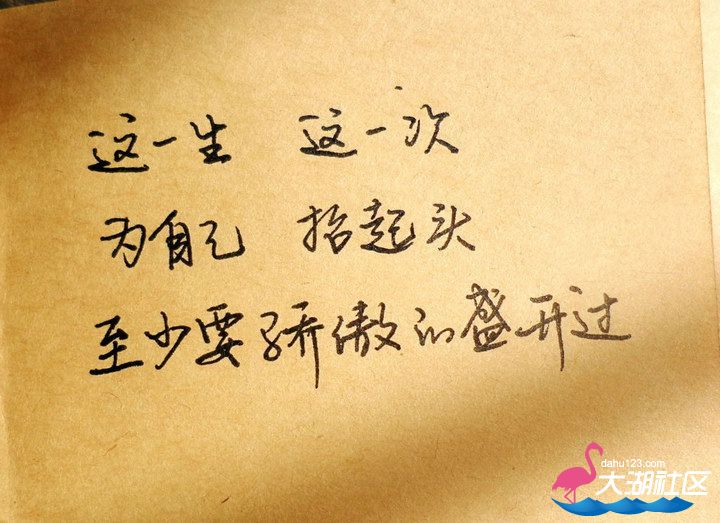 这一生 这一次
为自己 抬起头
至少要骄傲的盛开过
dahu123.com
大湖社区